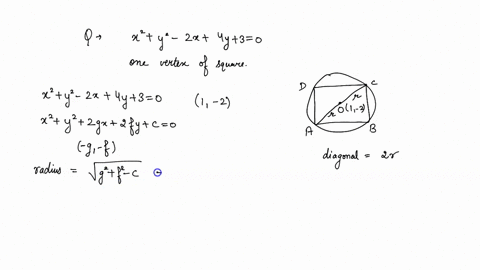 Q → x² + y² - 2x + 4y + 3 = 0
one vertex of square.
x² + y² - 2x + 4y + 3 = 0 (1, -2)
x² + y² + 2gx + 2fy + c = 0
(-g, -f)
radius = √g² + f² - c
D C
r
O(1, -2)
r
A B
diagonal = 2r